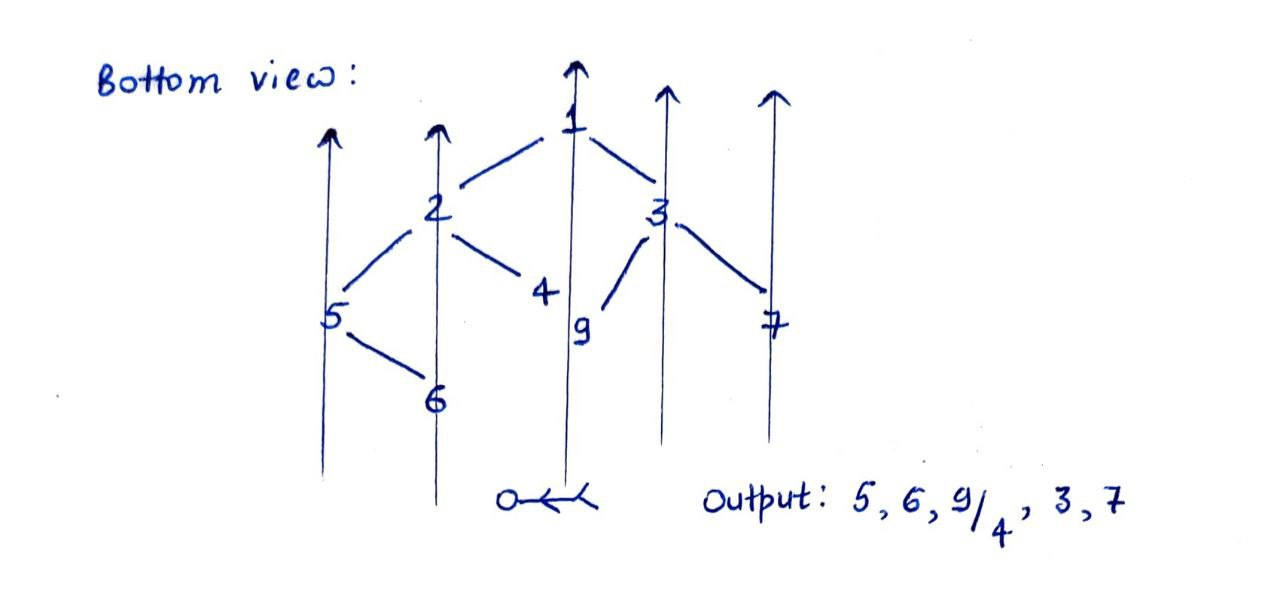 Bottom view:
1
2 3
4
5 9 7
6
Output: 5, 6, 9/4, 3, 7